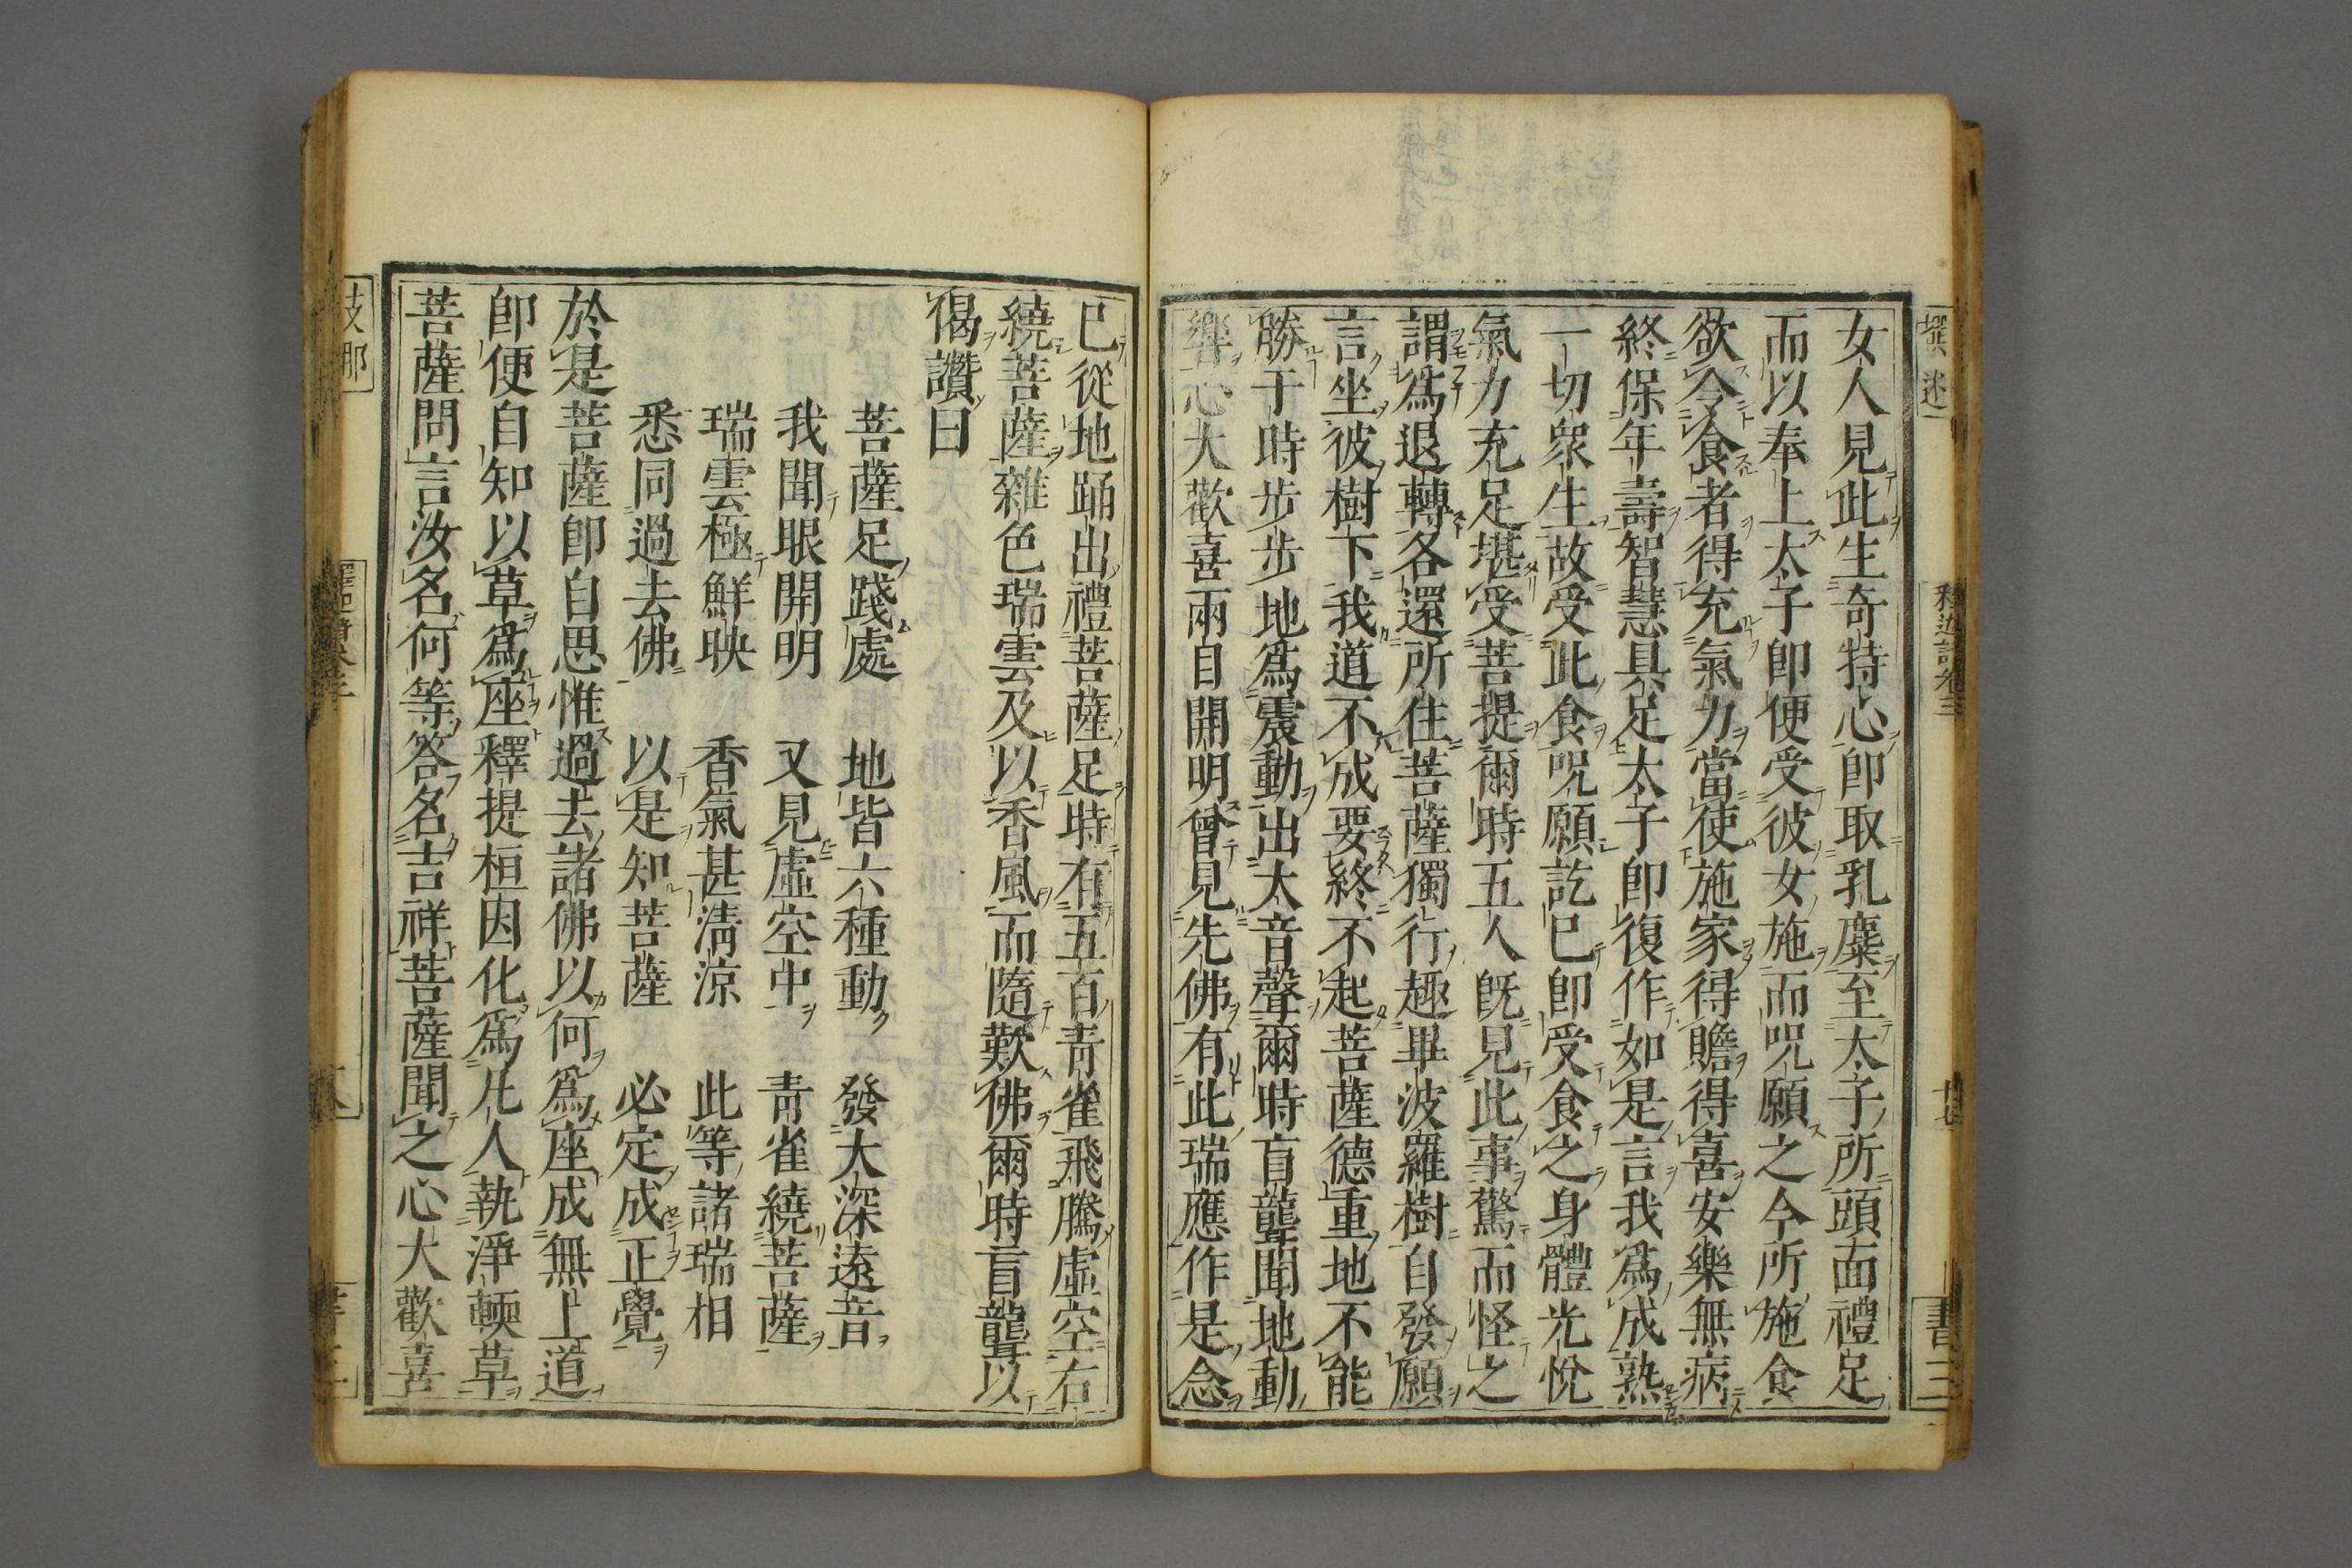 女人見此生奇特心即取乳麋至太子所頭面禮足
而以奉上太子即便受彼女施而呪願之今所施食
欲令食者得充氣力當使施家得贍得喜安樂無病
終保年壽智慧具足太子即復作如是言我爲成熟
一切衆生故受此食呪願訖已即受食之身體光悅
氣力充足堪受菩提爾時五人旣見此事驚而怪之
謂爲退轉各還所住菩薩獨行趣畢波羅樹自發願
言坐彼樹下我道不成要終不起菩薩德重地不能
勝于時步步地爲震動出太音聲爾時盲龍聞地動
響心大歡喜兩目開明曾見先佛有此瑞應作是念
已從地踊出禮菩薩足時有五百青雀飛騰虛空右
繞菩薩雜色瑞雲及以香風而隨歎佛爾時盲龍以
偈讚曰
菩薩足踐處 地皆六種動 發大深遠音
我聞眼開明 又見虛空中 青雀繞菩薩
瑞雲極鮮映 香氣甚淸涼 此等諸瑞相
悉同過去佛 以是知菩薩 必定成正覺
於是菩薩即自思惟過去諸佛以何爲座成無上道
即便自知以草爲座釋提桓因化爲凡人執淨輭草
菩薩問言汝名何等答名吉祥菩薩聞之心大歡喜